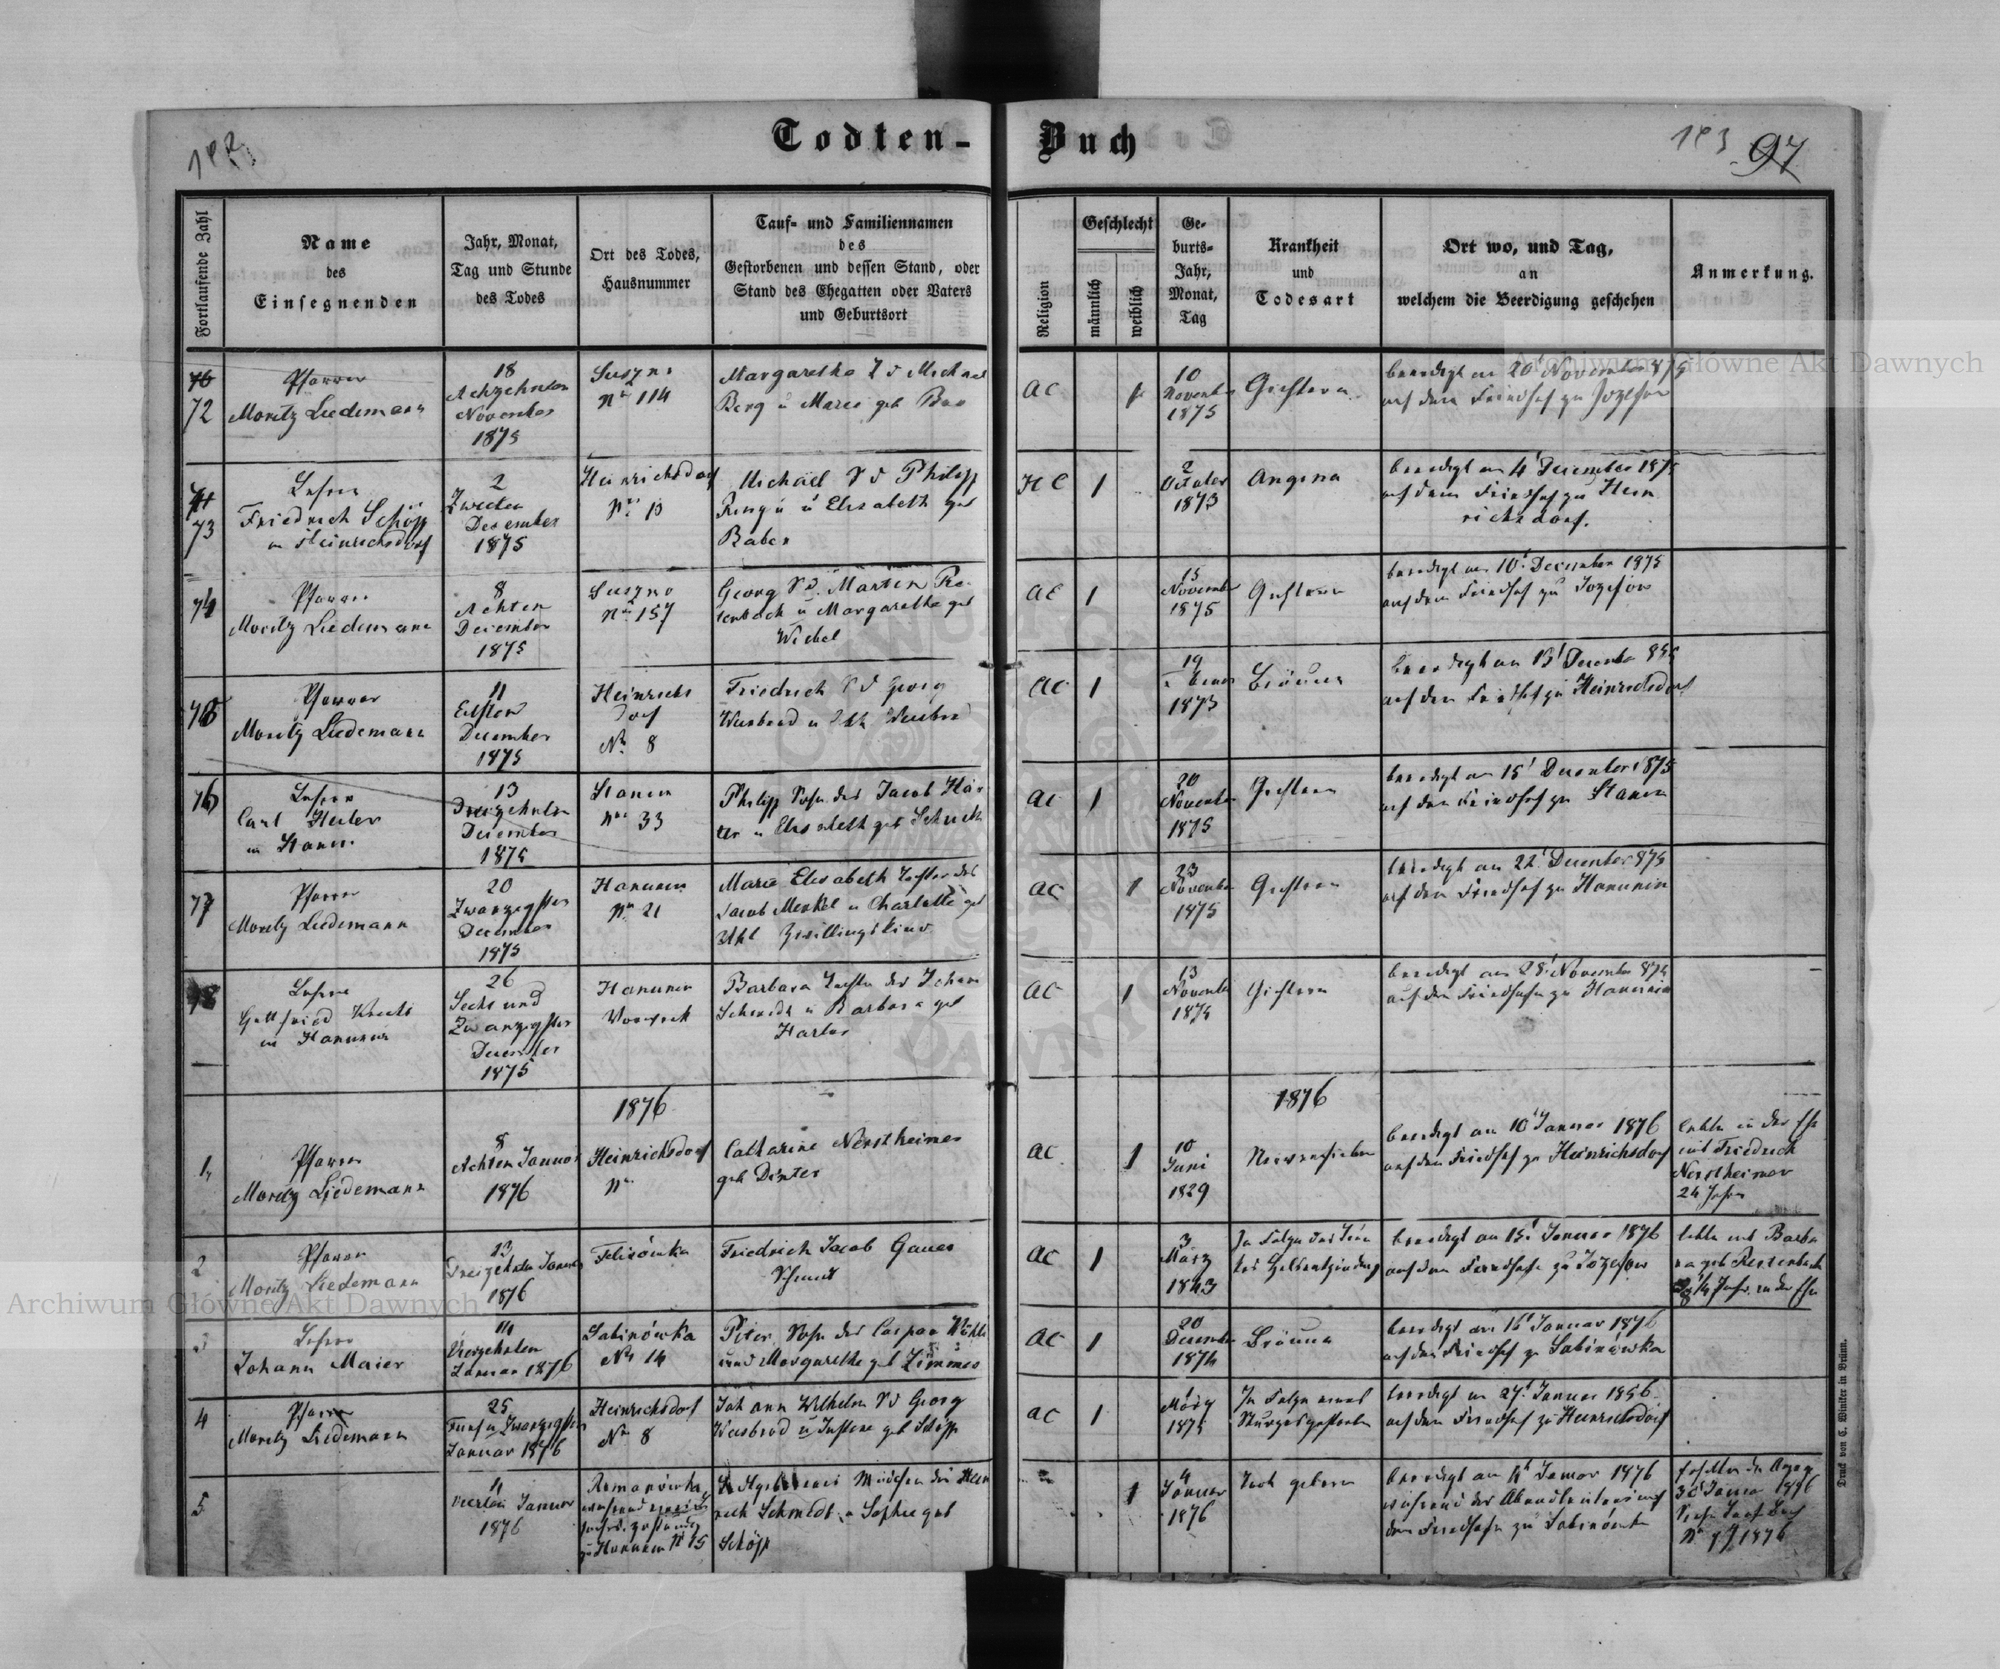 Todten-Buch
193
97
Fortlaufende Zahl
Name
des
Einsegnenden
Jahr, Monat,
Tag und Stunde
des Todes
Ort des Todes,
Hausnummer
Tauf- und Familiennamen
des
Gestorbenen und dessen Stand, oder
Stand des Ehegatten oder Vaters
und Geburtsort
Religion
Geschlecht
männlich
weiblich
Ge-
burts-
Jahr,
Monat,
Tag
Krankheit
und
Todesart
Ort wo, und Tag,
an
welchem die Beerdigung geschehen
Anmerkung.
72
Pfarrer
Moritz Liedemann
18
Achzehnten
November
1875
Suszno
Nro 114
Margaretha T d Michael
Berg u Maria geb
AC
10
November
1875
Gichtern
beerdigt am 20t November 875
auf dem Friedhof zu Jozefow
73
Lehrer
Friedrich Schöpp
in Heinrichsdorf
2
Zweiten
Dezember
1875
Heinrichsdorf
Nro 13
Michael S d Philipp
u Elisabeth geb
Baber
HC
1
2
October
1873
Angina
beerdigt am 4t December 1875
auf dem Friedhof zu Hein
richsdorf.
74
Pfarrer
Moritz Liedemann
8
Achten
December
1875
Suszno
Nro 157
Georg S d. Martin Re-
tenbach u Margaretha geb
Wiebel
AC
1
15
November
1875
Gichtern
beerdigt am 10t December 1875
auf dem Friedhof zu Jozefow
75
Pfarrer
Moritz Liedemann
11
Eilften
December
1875
Heinrichs
dorf
No 8
Friedrich S d Georg
Weisbrod u
AC
1
19
1873
Bräune
beerdigt am 13t December 875
auf dem Friedhof zu Heinrichsdorf
76
Lehrer
Carl Heiler
in Stanin
13
Dreizehnten
December
1875
Stanin
Nro 33
Philipp Sohn des Jacob Här
ter u Elisabeth geb
AC
1
20
November
1875
Gichtern
beerdigt am 15t December 1875
auf dem Friedhof zu Stanin
77
Pfarrer
Moritz Liedemann
20
Zwanzigsten
December
1875
Hanunin
No 21
Maria Elisabeth Tochter des
Jacob Merkel u Charlotte geb
Uhl Zwillingskind
AC
1
23
November
1875
Gichtern
beerdigt am 22t December 875
auf dem Friedhof zu Hanunin
78
Lehrer
Gottfried
in Hanunin
26
Sechs und
Zwanzigsten
December
1875
Hanunin
Vorwerk
Barbara Tochter des Johann
Schmidt u Barbara geb
Harter
AC
1
13
November
1875
Gichtern
beerdigt am 28t November 875
auf dem Friedhofe zu Hanunin
1876
1876
1,
Pfarrer
Moritz Liedemann
8
Achten Januar
1876
Heinrichsdorf
Nro
Catharine Nerstheimer
geb Dinter
AC
1
10
Juni
1829
Nervenfieber
beerdigt am 10t Januar 1876
auf dem Friedhof zu Heinrichsdorf
lebte in der Ehe
mit Friedrich
Nerstheimer
24 Jahre
2
Pfarrer
Moritz Liedemann
13
Dreizehnten Januar
1876
Felizówka
Friedrich Jacob Gauer
Schmied
AC
1
3
März
1843
In Folge
beerdigt am 15t Januar 1876
auf dem Friedhofe zu Jozefow
lebte mit Barba
ra geb
Jahr in der Ehe
3
Lehrer
Johann Maier
14
Vierzehnten
Januar 1876
Sabinówka
No 14
Peter Sohn des Caspar
und Margaretha geb Zimmer
AC
1
20
December
1874
Bräune
beerdigt am 16t Januar 1876
auf dem Friedhof zu Sabinówka
4
Pfarrer
Moritz Liedemann
25
Fünf u Zwanzigsten
Januar 1876
Heinrichsdorf
No 8
Johann Wilhelm S d Georg
Weisbrod u Justine geb Schöpp
AC
1
1
März
1875
In Folge eines
Sturzes gestorben
beerdigt am 27t Januar 1876
auf dem Friedhof zu Heinrichsdorf
5
4
Vierten Januar
1876
Romanówka
zu Hanunin No 15
Mädchen des Hein
rich Schmidt u Sophie geb
Schöpp
1
4
Januar
1876
Todt geboren
beerdigt am 4t Januar 1876
während des
dem Friedhofe zu Sabinówka
1876
No 1876
Druck von C. Winiker in Brünn.
Archiwum Główne Akt Dawnych
Archiwum Główne Akt Dawnych